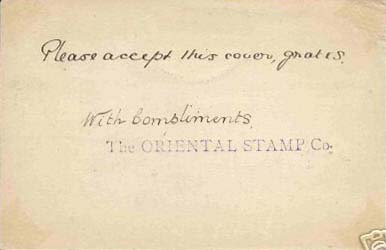 Please accept this cover, gratis.
With Compliments,
The ORIENTAL STAMP Co.